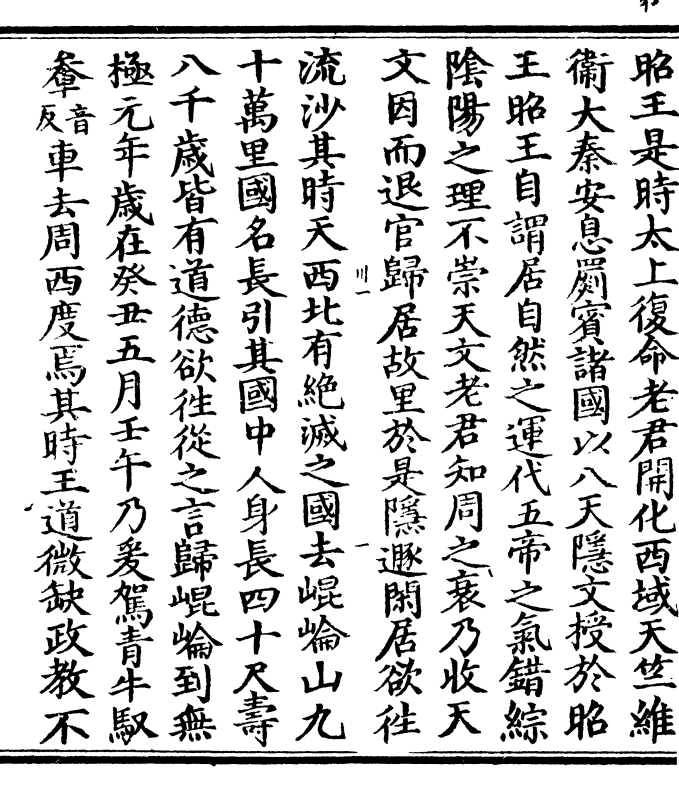 昭王是時太上復命老君開化西域天竺維
衞大秦安息罽賓諸國以八天隱文授於昭
王昭王自謂居自然之運代五帝之氣錯綜
陰陽之理不崇天文老君知周之衰乃收天
文因而退官歸居故里於是隱遯閑居欲徃
流沙其時天西北有絶滅之國去崐崘山九
十萬里國名長引其國中人身長四十尺壽
八千歲皆有道德欲徃從之言歸崐崘到無
極元年歲在癸丑五月壬午乃爰駕青牛馭
音反車去周西度焉其時王道微缺政教不